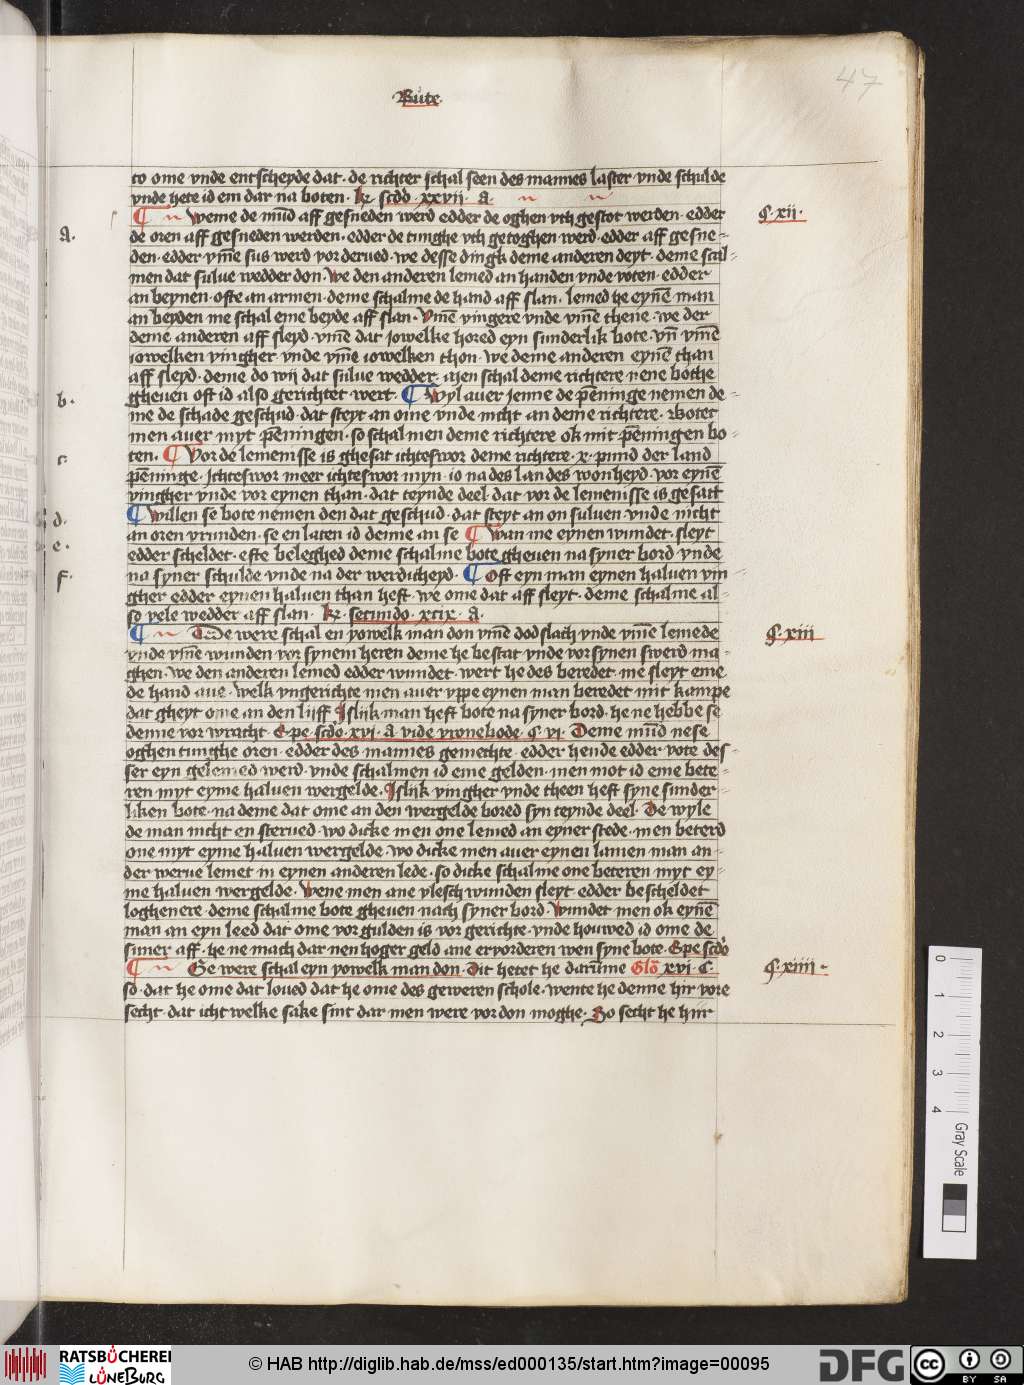 47
Bute
to ome vnde entscheyde dat · de richter schal seen des mannes laster vnde schulde
vnde hete id em dar na boten · k̄ scdō · xxvij · a
Weme de mūd aff gesneden werd edder de oghen vth gestot werden · edder
§ · xii ·
a.
de oren aff gesneden werden · edder de tunghe vth getoghen werd · edder aff gesne-
den · edder vm̄e sus werd vorderued · we desse dingk deme anderen deyt · deme scal-
men dat sulue wedder don · We den anderen lemed an handen vnde voten · edder
an beynen · ofte an armen · deme schalme de hand aff slan · lemed he eynē man
an beyden me schal eme beyde aff slan · Vm̄e vingere vnde vm̄e thene · we der
deme anderen aff sleyd · vm̄e dat iowelke hored eyn sunderlik bote · vn̄ vm̄e
iowelken vingher vnde vm̄e iowelken thon · we deme anderen eynē than
aff sleyd · deme do wij dat sulue wedder · men schal deme richtere nene bothe
b.
gheuen oft id also gerichtet wert · Wyl auer jenne de pēninge nemen de-
me de schade geschud · dat steyt an ome vnde nicht an deme richtere · Botet
men auer myt pēningen · so schal men deme richtere ok mit pēningen bo-
c.
ten · Vor de lemenisse is ghesat ichteswor deme richtere · x · pund der land
pēninge · Ichteswor meer ichteswor myn · io na des landes wonheyd · vor eynē
vingher vnde vor eynen than · dat teynde deel · dat vor de lemenisse is gesatt
d.
Willen se bote nemen den dat geschud · dat steyt an on suluen vnde nicht
e.
an oren vrunden · se en laten id denne an se Wan me eynen wundet · sleyt
edder scheldet · efte beleghed deme schalme bote gheuen na syner bord vnde
f.
na syner schulde vnde na der werdicheyd · Oft eyn man eynen haluen vin
gher edder eynen haluen than heft · we ome dat aff sleyt · deme schalme al-
so vele wedder aff slan · k̄ · secundo · xcix · a ·
were schal en yowelk man don vm̄e dodslach vnde vm̄e lemede
§ · xiii
vnde vm̄e wunden vor synem heren deme he bestat vnde vor synen swerd ma-
ghen · We den anderen lemed edder wundet · wert he des beredet · me sleyt eme
de hand aue · Welk vngerichte men auer vppe eynen man beredet mit kampe
dat gheyt ome an den lijff Islijk man heft bote na syner bord · he ne hebbe se
denne vor wracht · Epe scdō · xvi · a vide vronebode · § · vi · Deme mūd nese
oghen tunghe oren · edder des mannes gemechte · edder hende edder vote des-
ser eyn gelemed werd · vnde schalmen id eme gelden · men mot id eme bete-
ren myt eyme haluen wergelde · Islijk vingher vnde theen heft syne sunder-
liken bote · na deme dat ome an den wergelde bored syn teynde deel · De wyle
de man nicht en sterued · wo dicke men one lemed an eyner stede · men beterd
one myt eyme haluen wergelde · wo dicke men auer eynen lamen man an-
der werue lemet in eynen anderen lede · so dicke schalme one beteren myt ey-
me haluen wergelde · Wene men ane vlesch wunden sleyt edder bescheldet
loghenere · deme schalme bote gheuen nach syner bord · Wundet men ok eynē
man an eyn leed dat ome vor gulden is vor gerichte · vnde houwed id ome de
sinner aff · he ne mach dar nen hoger geld ane ervorderen wen syne bote · Epe scdō
Ge were schal eyn yowelk man don · Dit hetet he darūme Glō xvi · c ·
§ · xiiii ·
so · dat he ome dat loued dat he ome des geweren schole · wente he denne hir vore
secht · dat icht welke sake sint dar men were vor don moghe · So secht he hiir
0
1
2
3
4
Gray Scale
RATSBÜCHEREI
LÜNEBURG
© HAB http://diglib.hab.de/mss/ed000135/start.htm?image=00095
DFG
cc BY SA